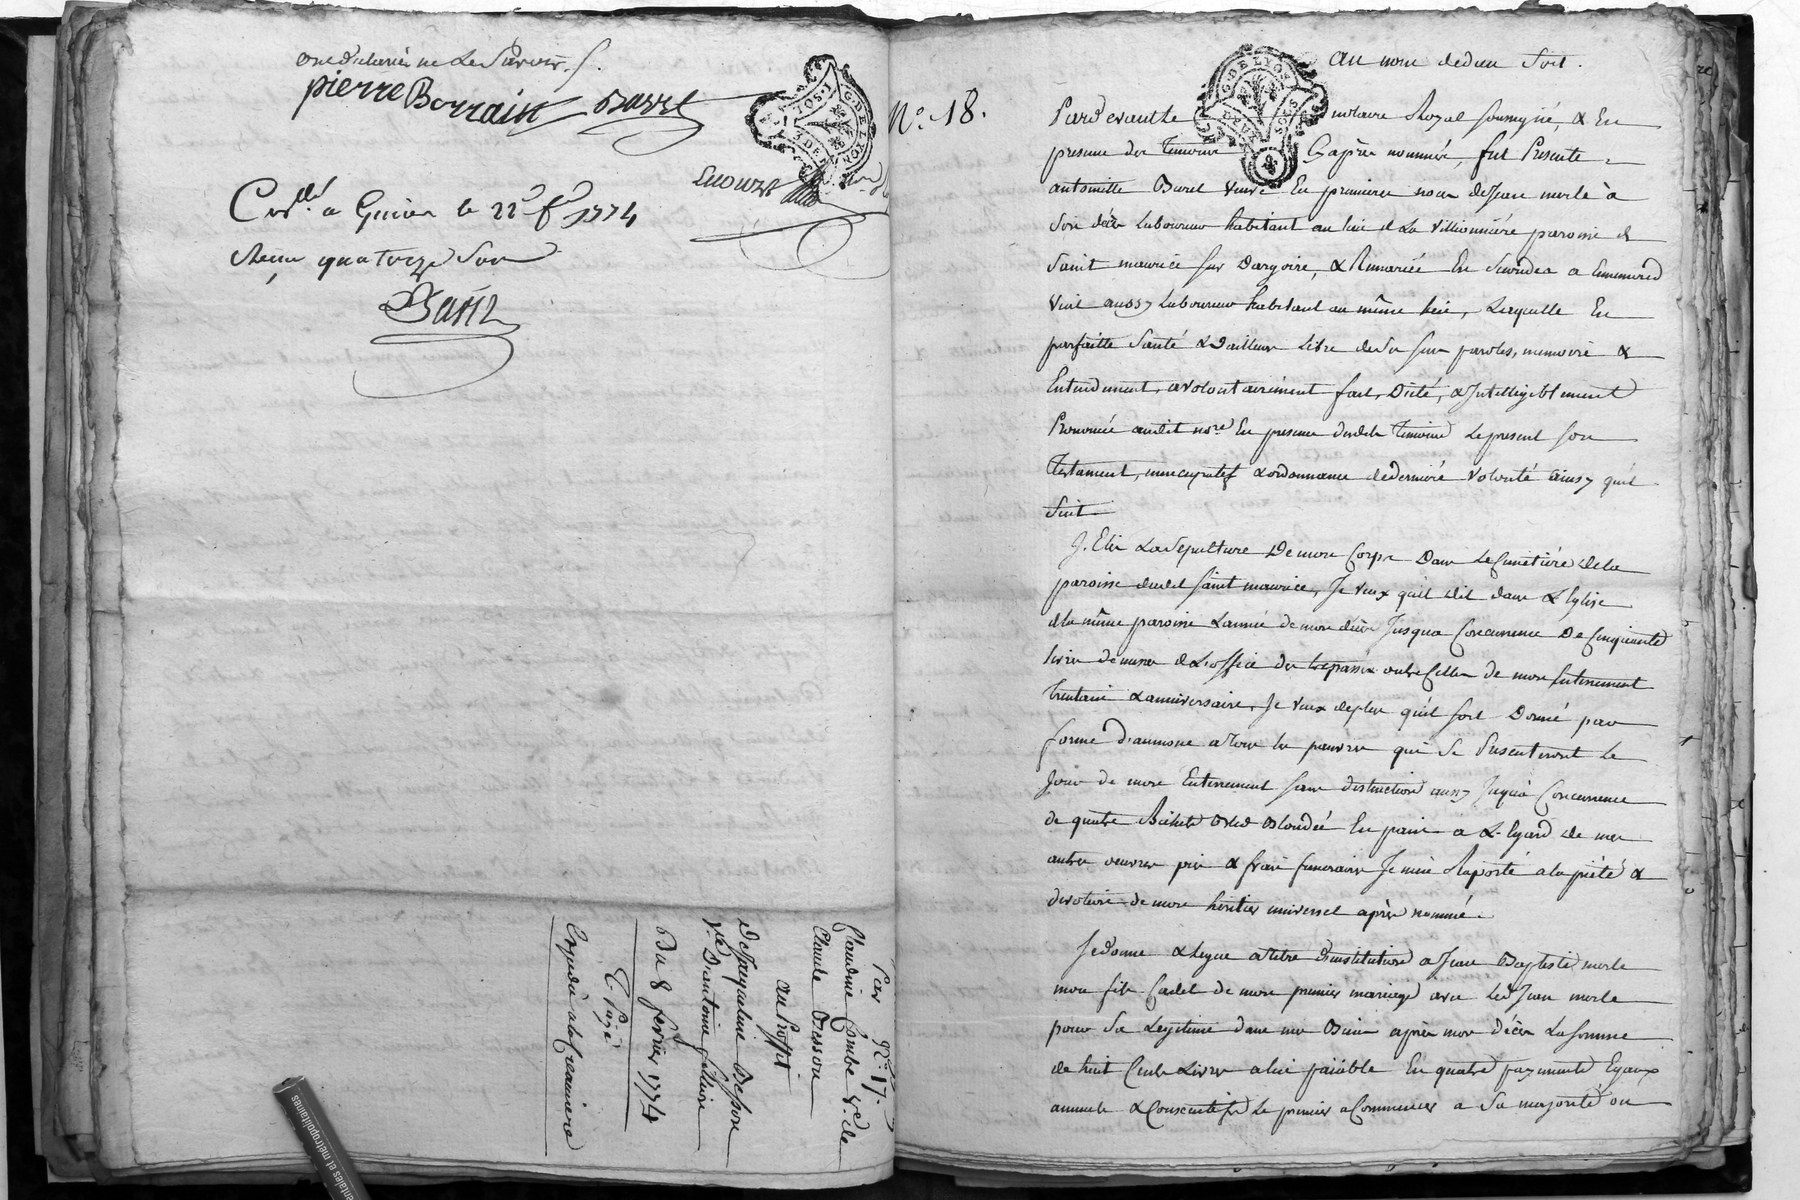 pierre Borrain
G. DE LYON
a Givors le 22e fer 1774
quatorze sous
N.o 17.
Par
Claudine Combe Ve. de
Claude Besson
au Proffit
De Jacqueline Bessone
Ve. D'antoine
Du 8 fevrier 1774
C. Payé
Expedié a la Creanciere
entales et métropolitaines
N.o 18.
Au nom de dieu Soit.
G. DE LYON
DEUX SOLS
Pardevant le notaire Royal soussigné, & En
presence des Temoins Cy après nommés, fut Presente
antoinette Burel veuve En premieres noces de Jean merle à
Son décès Laboureur habitant au lieu de La Villionniére paroisse de
Saint maurice sur Dargoire, & Remariée En Secondes a
Vial aussy Laboureur habitant au même lieu, Laquelle En
parfaitte Santé & D'ailleurs Libre de Ses sens paroles, memoire &
Entendement, a volontairement fait, Dicté, & Intelligiblement
Prononcée audit no.re En presence desdits Temoins Le present Son
Testament, noncupatif & ordonnance de derniére Volonté ainsy qu'il
Suit
J. Elis La Sepulture De mon Corps Dans Le Cimetiére de la
paroisse dudit Saint maurice, Je veux qu'il soit dit dans L'Eglise
de la même paroisse L'année de mon décès Jusqua Concurrence De Cinquante
livres de messes de L'office des trepassés outre Celles de mon Enterrement
Trentaine & anniversaire, Je veux de plus qu'il soit Donné par
forme D'aumone a tous les pauvres qui Se Presenteront Le
Jour de mon Enterrement sans distinction aussy Jusqu'à Concurrence
de quatre Bichets Bled En pain a L'Egard de mes
autres oeuvres pies & frais funeraires Je m'en Raporte a la piété &
devotion de mon héritier universel après nommé.
Je donne & Legue a titre D'institution a Jean Baptiste merle
mon fils Cadet de mon premier mariage avec Led. Jean merle
pour Sa Legitime dans mes Biens après mon décès La Somme
de huit Cents Livres a lui païable En quatre payements Egaux
annuels & Consecutifs Le premier a Commencer a Sa majorité ou